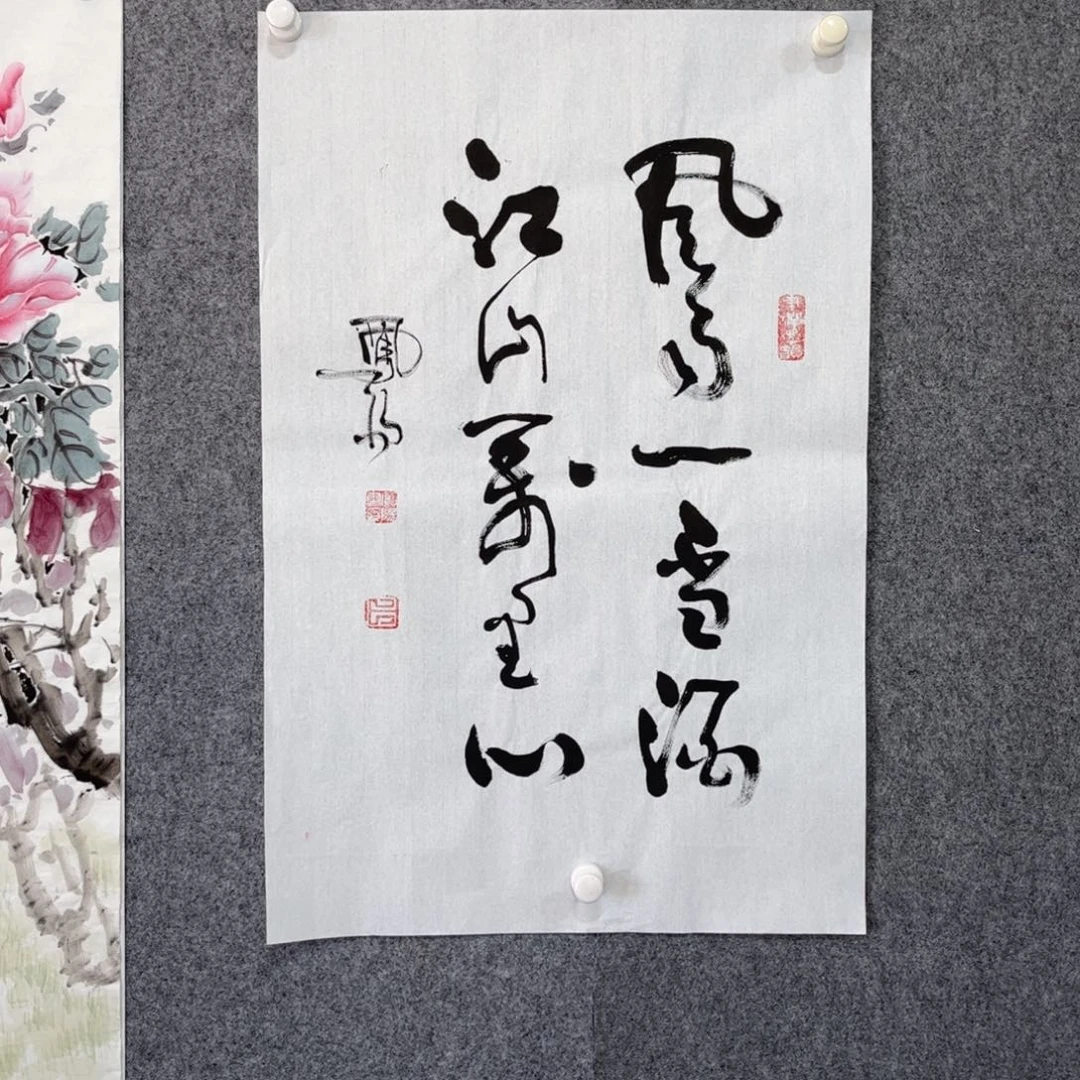 風雨一壺酒
江山萬里心